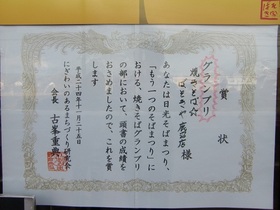 賞状
グランプリ
様
あなたは日光そばまつり、
「もう一つのそばまつり」に
おける、焼きそばグランプリ
の部において、頭書の成績を
おさめましたので、これを賞
します
平成二十四年十一月二十五日
にぎわいのあるまちづくり研究会
会長 古峯重典